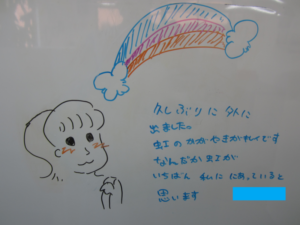 久しぶりに外に
出ました。
虹のかがやきがキレイです
なんだか虹が
いちばん 私に にあっていると
思います